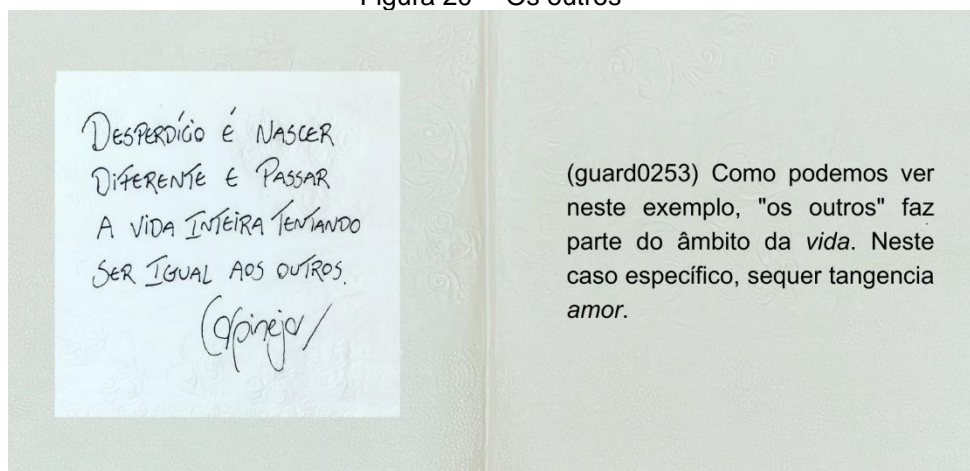 Figura 20 – Os outros
DESPERDÍCIO É NASCER
DIFERENTE E PASSAR
A VIDA INTEIRA TENTANDO
SER IGUAL AOS OUTROS.
Carpinejar
(guard0253) Como podemos ver
neste exemplo, "os outros" faz
parte do âmbito da vida. Neste
caso específico, sequer tangencia
amor.